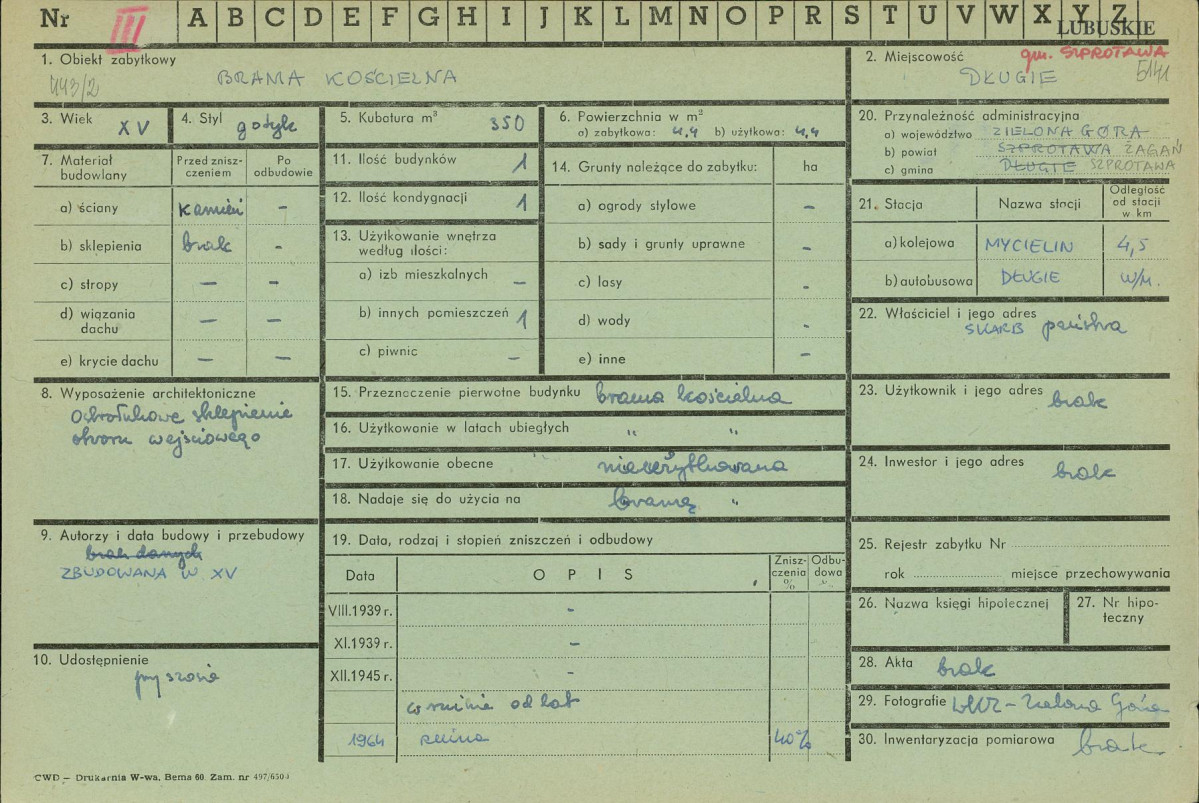 Nr III A B C D E F G H I J K L M N O P R S T U V W X Y Z
LUBUSKIE
1. Obiekt zabytkowy
443/2
BRAMA KOŚCIELNA
2. Miejscowość gm. SZPROTAWA
DŁUGIE 5141
3. Wiek XV
4. Styl gotyk
5. Kubatura m³ 350
6. Powierzchnia w m²
a) zabytkowa: 4,4 b) użytkowa: 4,4
7. Materiał budowlany
Przed zniszczeniem
Po odbudowie
a) ściany kamień –
b) sklepienia brak -
c) stropy – –
d) wiązania dachu – –
e) krycie dachu – –
8. Wyposażenie architektoniczne
Ostrołukowe sklepienie
otworu wejściowego
9. Autorzy i data budowy i przebudowy
brak danych
ZBUDOWANA W XV
10. Udostępnienie
przy szosie
11. Ilość budynków 1
12. Ilość kondygnacji 1
13. Użytkowanie wnętrza
według ilości:
a) izb mieszkalnych –
b) innych pomieszczeń 1
c) piwnic –
14. Grunty należące do zabytku: ha
a) ogrody stylowe –
b) sady i grunty uprawne -
c) lasy -
d) wody -
e) inne –
15. Przeznoczenie pierwotne budynku brama kościelna
16. Użytkowanie w latach ubiegłych " "
17. Użytkowanie obecne nieużytkowana
18. Nadaje się do użycia na bramę "
19. Data, rodzaj i stopień zniszczeń i odbudowy
Data OPIS Zniszczenia % Odbudowa %
VIII.1939 r. -
XI.1939 r. -
XII.1945 r.
w ruinie od lat
1964 ruina 40%
20. Przynależność administracyjna
a) województwo ZIELONA GÓRA
b) powiat SZPROTAWA ŻAGAŃ
c) gmina DŁUGIE SZPROTAWA
21. Stacja
Nazwa stacji
Odległość od stacji w km
a) kolejowa MYCIELIN 4,5
b) autobusowa DŁUGIE w/m.
22. Właściciel i jego adres
SKARB państwa
23. Użytkownik i jego adres brak
24. Inwestor i jego adres
brak
25. Rejestr zabytku Nr
rok miejsce przechowywania
26. Nazwa księgi hipotecznej
27. Nr hipoteczny
28. Akta brak
29. Fotografie WKZ – Zielona Góra
30. Inwentaryzacja pomiarowa brak
CWD – Drukarnia W-wa, Bema 60. Zam. nr 497/6503